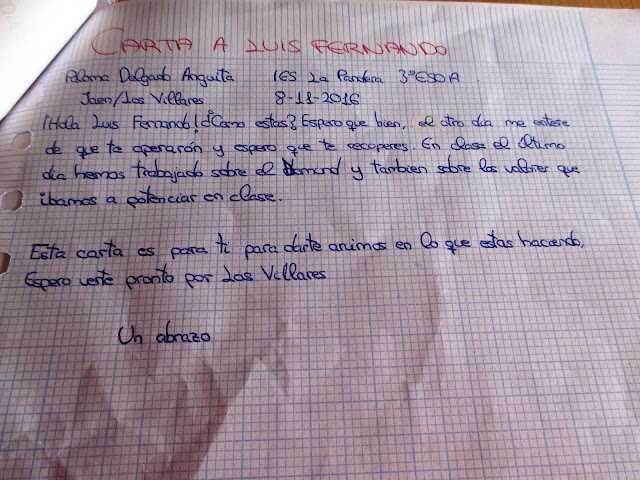 CARTA A LUIS FERNANDO
Paloma Delgado Anguita IES La Pandera 3ºESO A.
Jaen/Los Villares 8-11-2016
¡Hola Luis Fernando! ¿Como estas? Espero que bien, el otro dia me entere
de que te operarón y espero que te recuperes. En clase el último
dia hemos trabajado sobre el Domund y tambien sobre los valores que
ibamos a potenciar en clase.
Esta carta es para ti para darte animos en lo que estas haciendo,
Espero verte pronto por Los Villares
Un abrazo